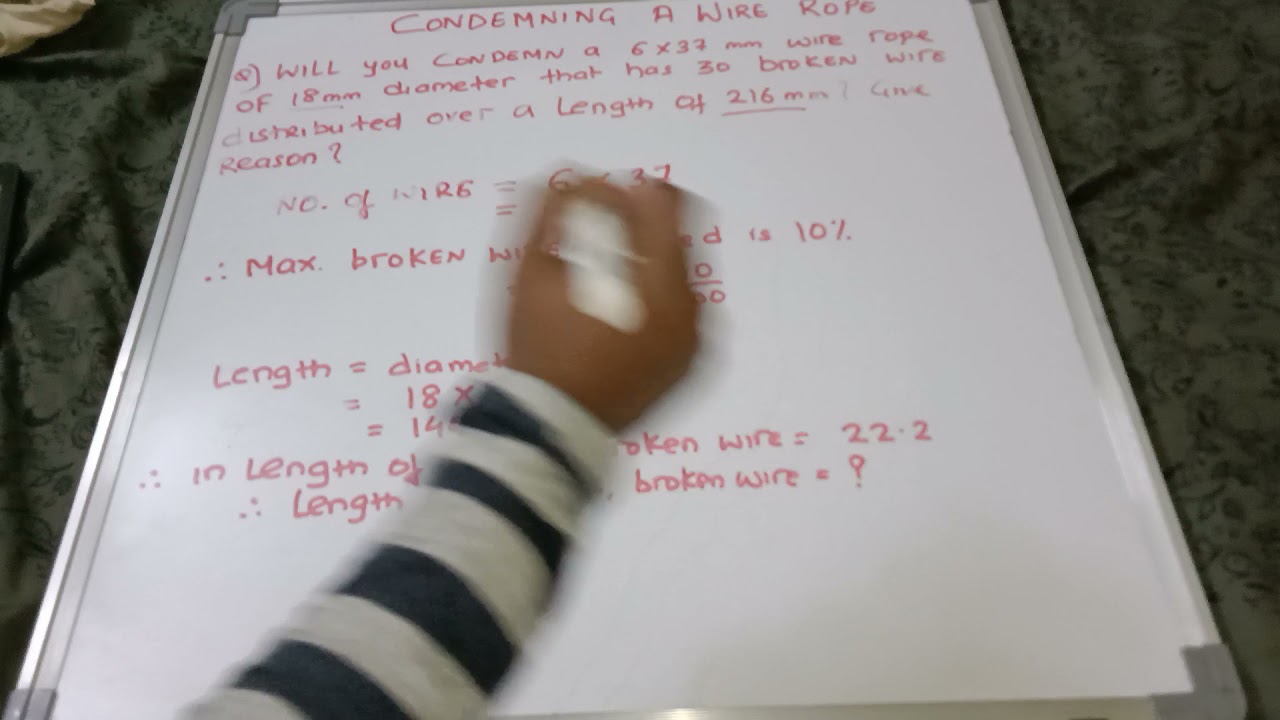 CONDEMNING A WIRE ROPE
Q) WILL you CONDEMN a 6x37 mm wire rope
OF 18mm diameter that has 30 broken wire
distributed over a Length of 216 mm? Give
Reason?
NO. of WIRE = 6 x 37
=
∴ Max. broken is 10%
Length =
= 18 x
=
∴ in Length of wire = 22.2
∴ Length broken wire = ?